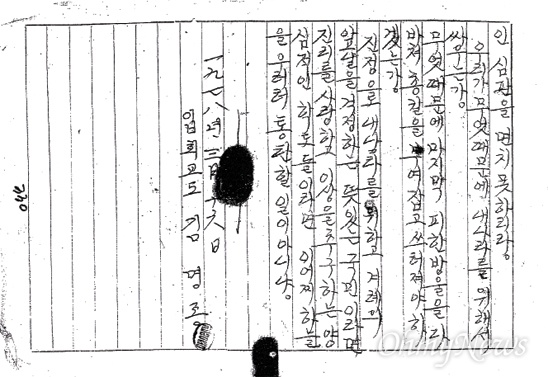 인 심판을 면치 못하리랑
우리가 무엇때문에 내나라를 위해서
싸우는강
무엇때문에 마지막 피한방울을 다
바쳐 총칼을 부여잡고 쓰러져야 하
겠는강
진정으로 내나라를 위하고 겨레의
앞날을 걱정하는 뜻있는 국민이라면
진리를 사랑하고 이상을 추구하는 양
심적인 학도들이라면 어찌 하늘
을 우러러 통탄할 일이 아니냥
一九七八年
김 명
OhmyNews